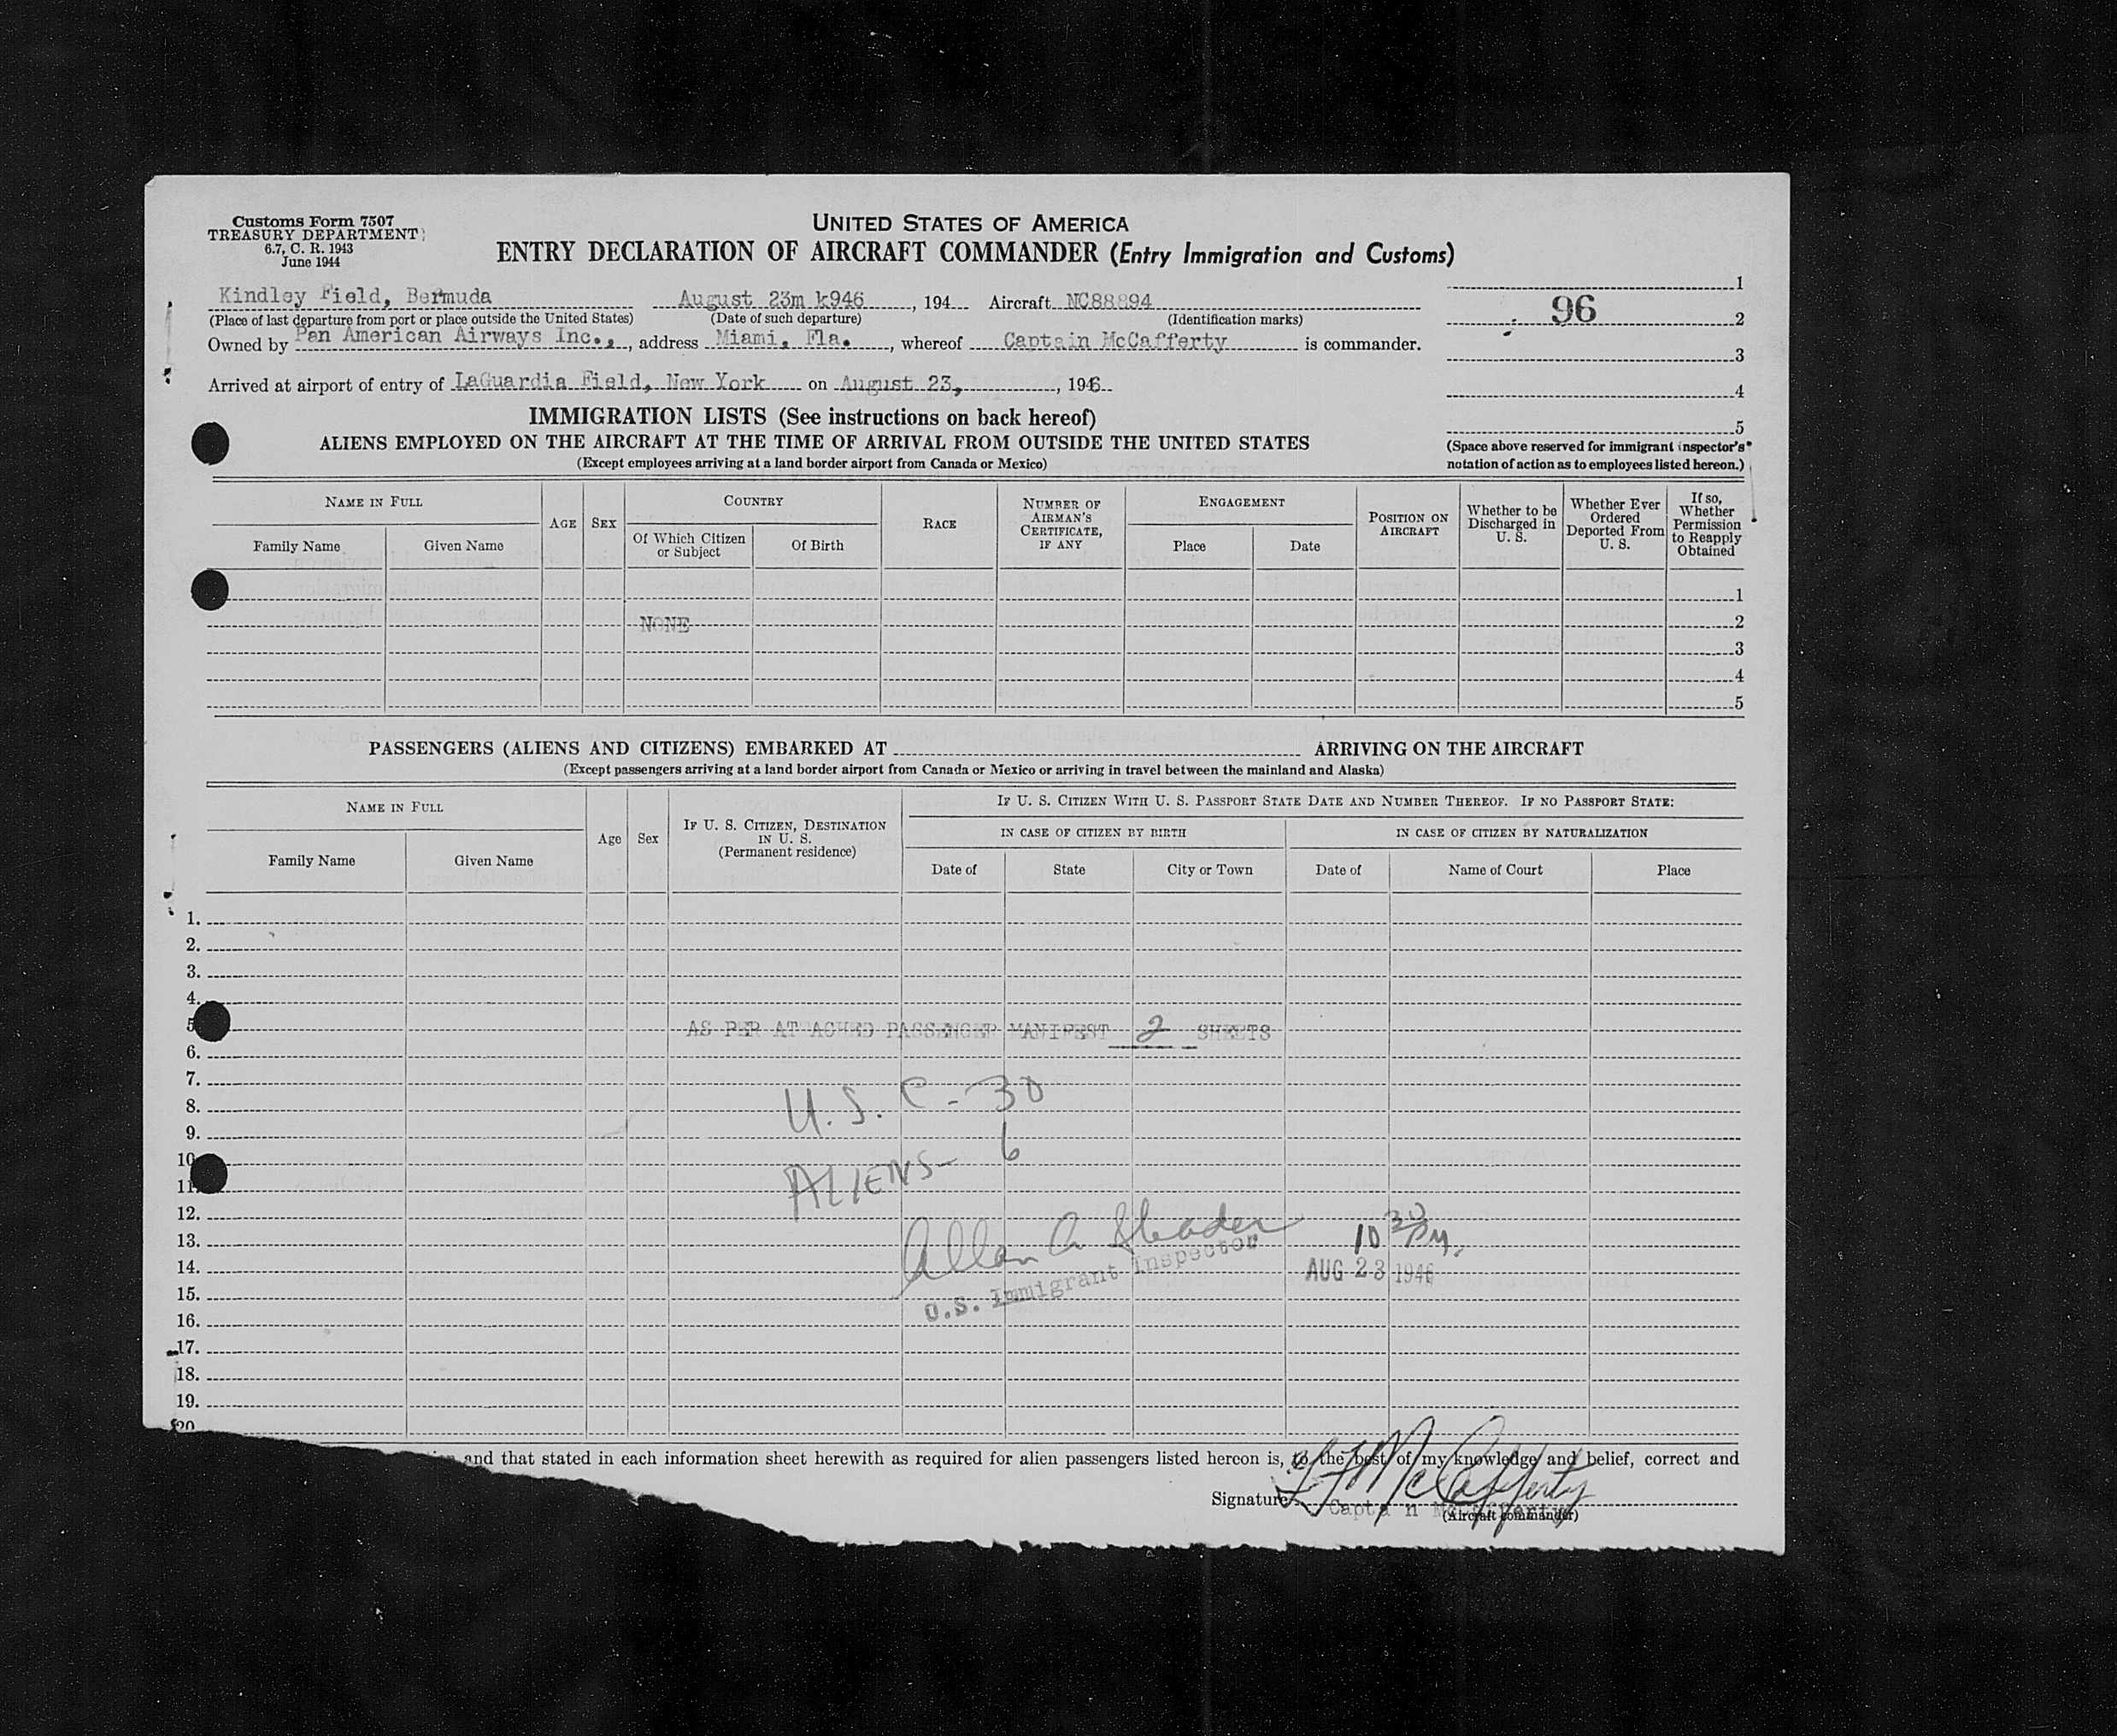 Customs Form 7507
TREASURY DEPARTMENT
6.7, C. R. 1943
June 1944
UNITED STATES OF AMERICA
ENTRY DECLARATION OF AIRCRAFT COMMANDER (Entry Immigration and Customs)
Kindley Field, Bermuda August 23m k946, 194 Aircraft NC88894
(Place of last departure from port or place outside the United States) (Date of such departure) (Identification marks)
Owned by Pan American Airways Inc., , address Miami, Fla. , whereof Captain McCafferty is commander.
Arrived at airport of entry of LaGuardia Field, New York on August 23, , 1946
1
96
2
3
4
5
(Space above reserved for immigrant inspector's
notation of action as to employees listed hereon.)
IMMIGRATION LISTS (See instructions on back hereof)
ALIENS EMPLOYED ON THE AIRCRAFT AT THE TIME OF ARRIVAL FROM OUTSIDE THE UNITED STATES
(Except employees arriving at a land border airport from Canada or Mexico)
NAME IN FULL
Family Name Given Name
AGE SEX
COUNTRY
Of Which Citizen or Subject
Of Birth
RACE
NUMBER OF AIRMAN'S CERTIFICATE, IF ANY
ENGAGEMENT
Place Date
POSITION ON AIRCRAFT
Whether to be Discharged in U. S.
Whether Ever Ordered Deported From U. S.
If so, Whether Permission to Reapply Obtained
1
NONE 2
3
4
5
PASSENGERS (ALIENS AND CITIZENS) EMBARKED AT ARRIVING ON THE AIRCRAFT
(Except passengers arriving at a land border airport from Canada or Mexico or arriving in travel between the mainland and Alaska)
NAME IN FULL
Family Name Given Name
Age Sex
IF U. S. CITIZEN, DESTINATION IN U. S.
(Permanent residence)
IF U. S. CITIZEN WITH U. S. PASSPORT STATE DATE AND NUMBER THEREOF. IF NO PASSPORT STATE:
IN CASE OF CITIZEN BY BIRTH IN CASE OF CITIZEN BY NATURALIZATION
Date of State City or Town Date of Name of Court Place
1.
2.
3.
4.
5 AS PER ATTACHED PASSENGER MANIFEST 2 SHEETS
6.
7.
8. U. S. C - 30
9.
10 ALIENS - 6
11.
12.
13. Allan A 10 30 PM.
14. U.S. Immigrant Inspector AUG 23 1946
15.
16.
17.
18.
19.
20
and that stated in each information sheet herewith as required for alien passengers listed hereon is, to the best of my knowledge and belief, correct and
Signature McCafferty
Captain McCafferty
(Aircraft commander)